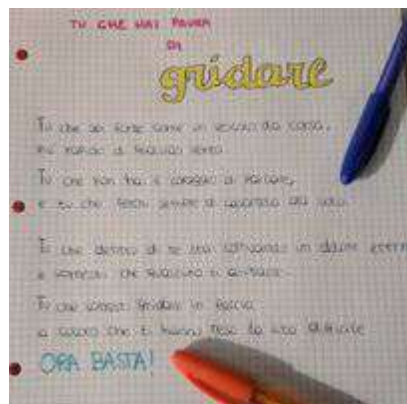 TU CHE HAI PAURA
DI
gridare
Tu che sei forte come un veicolo da corsa,
più rapido di qualsiasi vento.
Tu che non hai il coraggio di parlare,
e tu che cerchi sempre di
Tu che dentro di te stai coltivando un dolore
e vorresti che qualcuno ti
Tu che vorresti gridare in faccia
a coloro che ti hanno reso la vita difficile
ORA BASTA!